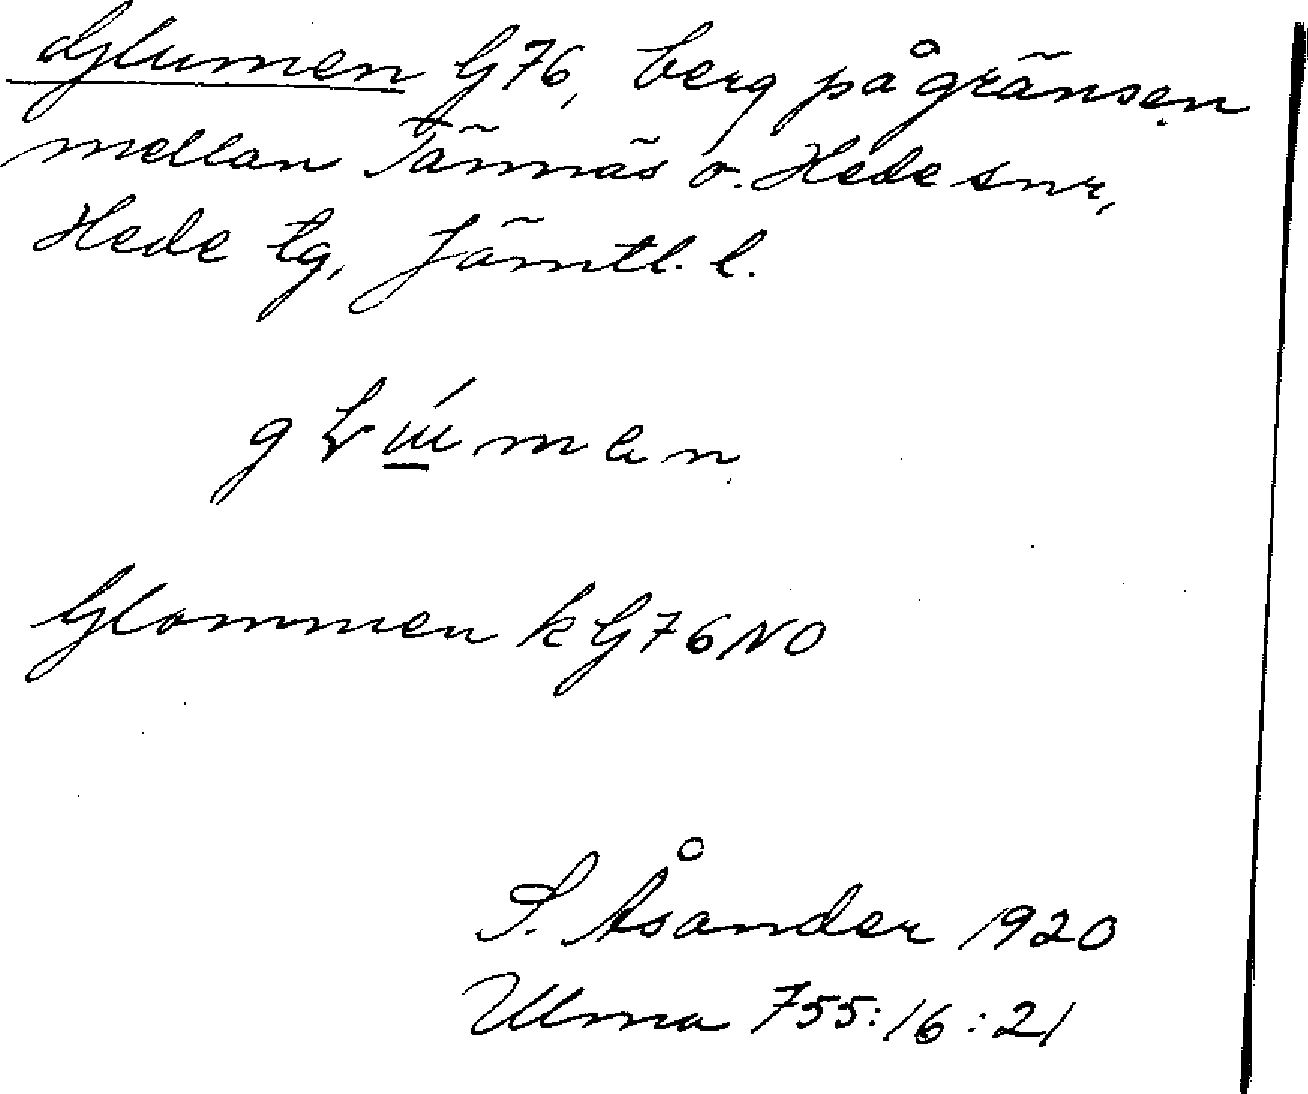 Glumen G76, berg på gränsen
mellan Tännäs o. Hede snr,
Hede tg, Jämtl. l.
Glommen k G76NO
S. Åsander 1920
Ulma 755:16:21